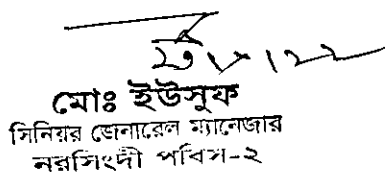 মোঃ ইউসুফ
সিনিয়র জেনারেল ম্যানেজার
নরসিংদী পবিস-২